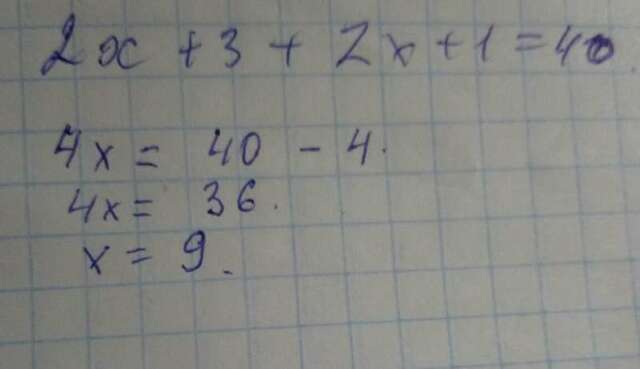 2x + 3 + 2x + 1 = 40
4x = 40 - 4.
4x = 36.
x = 9.